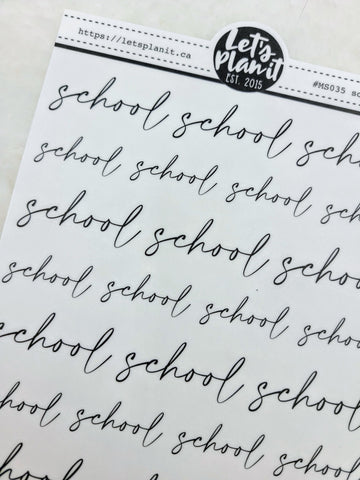 https://letsplanit.ca
Let's
plan it
EST. 2015
#MS035 sc
school school sch
school school school sch
school school schoo
school school school scho
school school school
school school school school
school school school